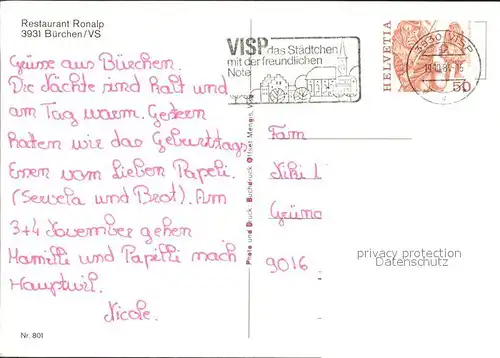 Restaurant Ronalp
3931 Bürchen/VS
Grüsse aus Bürchen.
Die Nächte sind kalt und
am Tag warm. Gestern
hatten wir das Geburtstags
Essen vom Lieben Papeli.
(Servela und Brot). Am
3+4 November gehen
Mamilli und Papilli nach
Hauptwil.
Nicole.
Nr. 801
Photo und Druck: Buchdruck Offset Mengis, Visp
VISP das Städtchen
mit der freundlichen
Note
3930 VISP
HELVETIA
50
Fam
Niki
Grüna
9016
privacy protection
Datenschutz